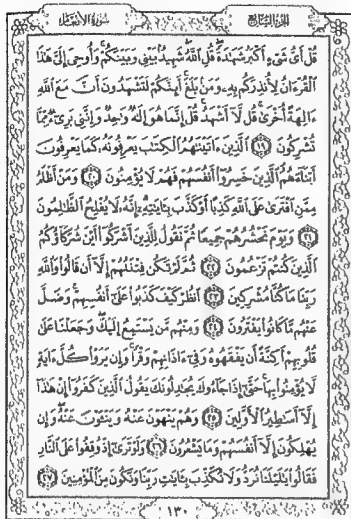 الجزء السابع
سورة الأنعام
قُلْ أَىُّ شَىْءٍ أَكْبَرُ شَهَٰدَةً قُلِ ٱللَّهُ شَهِيدٌۢ بَيْنِى وَبَيْنَكُمْ وَأُوحِىَ إِلَىَّ هَٰذَا
ٱلْقُرْءَانُ لِأُنذِرَكُم بِهِۦ وَمَنۢ بَلَغَ أَئِنَّكُمْ لَتَشْهَدُونَ أَنَّ مَعَ ٱللَّهِ
ءَالِهَةً أُخْرَىٰ قُل لَّآ أَشْهَدُ قُلْ إِنَّمَا هُوَ إِلَٰهٌ وَٰحِدٌ وَإِنَّنِى بَرِىٓءٌ مِّمَّا
تُشْرِكُونَ ١٩ ٱلَّذِينَ ءَاتَيْنَٰهُمُ ٱلْكِتَٰبَ يَعْرِفُونَهُۥ كَمَا يَعْرِفُونَ
أَبْنَآءَهُمُ ٱلَّذِينَ خَسِرُوٓا۟ أَنفُسَهُمْ فَهُمْ لَا يُؤْمِنُونَ ٢٠ وَمَنْ أَظْلَمُ
مِمَّنِ ٱفْتَرَىٰ عَلَى ٱللَّهِ كَذِبًا أَوْ كَذَّبَ بِـَٔايَٰتِهِۦٓ إِنَّهُۥ لَا يُفْلِحُ ٱلظَّٰلِمُونَ
٢١ وَيَوْمَ نَحْشُرُهُمْ جَمِيعًا ثُمَّ نَقُولُ لِلَّذِينَ أَشْرَكُوٓا۟ أَيْنَ شُرَكَآؤُكُمُ
ٱلَّذِينَ كُنتُمْ تَزْعُمُونَ ٢٢ ثُمَّ لَمْ تَكُن فِتْنَتُهُمْ إِلَّآ أَن قَالُوا۟ وَٱللَّهِ
رَبِّنَا مَا كُنَّا مُشْرِكِينَ ٢٣ ٱنظُرْ كَيْفَ كَذَبُوا۟ عَلَىٰٓ أَنفُسِهِمْ وَضَلَّ
عَنْهُم مَّا كَانُوا۟ يَفْتَرُونَ ٢٤ وَمِنْهُم مَّن يَسْتَمِعُ إِلَيْكَ وَجَعَلْنَا عَلَىٰ
قُلُوبِهِمْ أَكِنَّةً أَن يَفْقَهُوهُ وَفِىٓ ءَاذَانِهِمْ وَقْرًا وَإِن يَرَوْا۟ كُلَّ ءَايَةٍ
لَّا يُؤْمِنُوا۟ بِهَا حَتَّىٰٓ إِذَا جَآءُوكَ يُجَٰدِلُونَكَ يَقُولُ ٱلَّذِينَ كَفَرُوٓا۟ إِنْ هَٰذَآ
إِلَّآ أَسَٰطِيرُ ٱلْأَوَّلِينَ ٢٥ وَهُمْ يَنْهَوْنَ عَنْهُ وَيَنْـَٔوْنَ عَنْهُ وَإِن
يُهْلِكُونَ إِلَّآ أَنفُسَهُمْ وَمَا يَشْعُرُونَ ٢٦ وَلَوْ تَرَىٰٓ إِذْ وُقِفُوا۟ عَلَى ٱلنَّارِ
فَقَالُوا۟ يَٰلَيْتَنَا نُرَدُّ وَلَا نُكَذِّبَ بِـَٔايَٰتِ رَبِّنَا وَنَكُونَ مِنَ ٱلْمُؤْمِنِينَ ٢٧
١٣٠